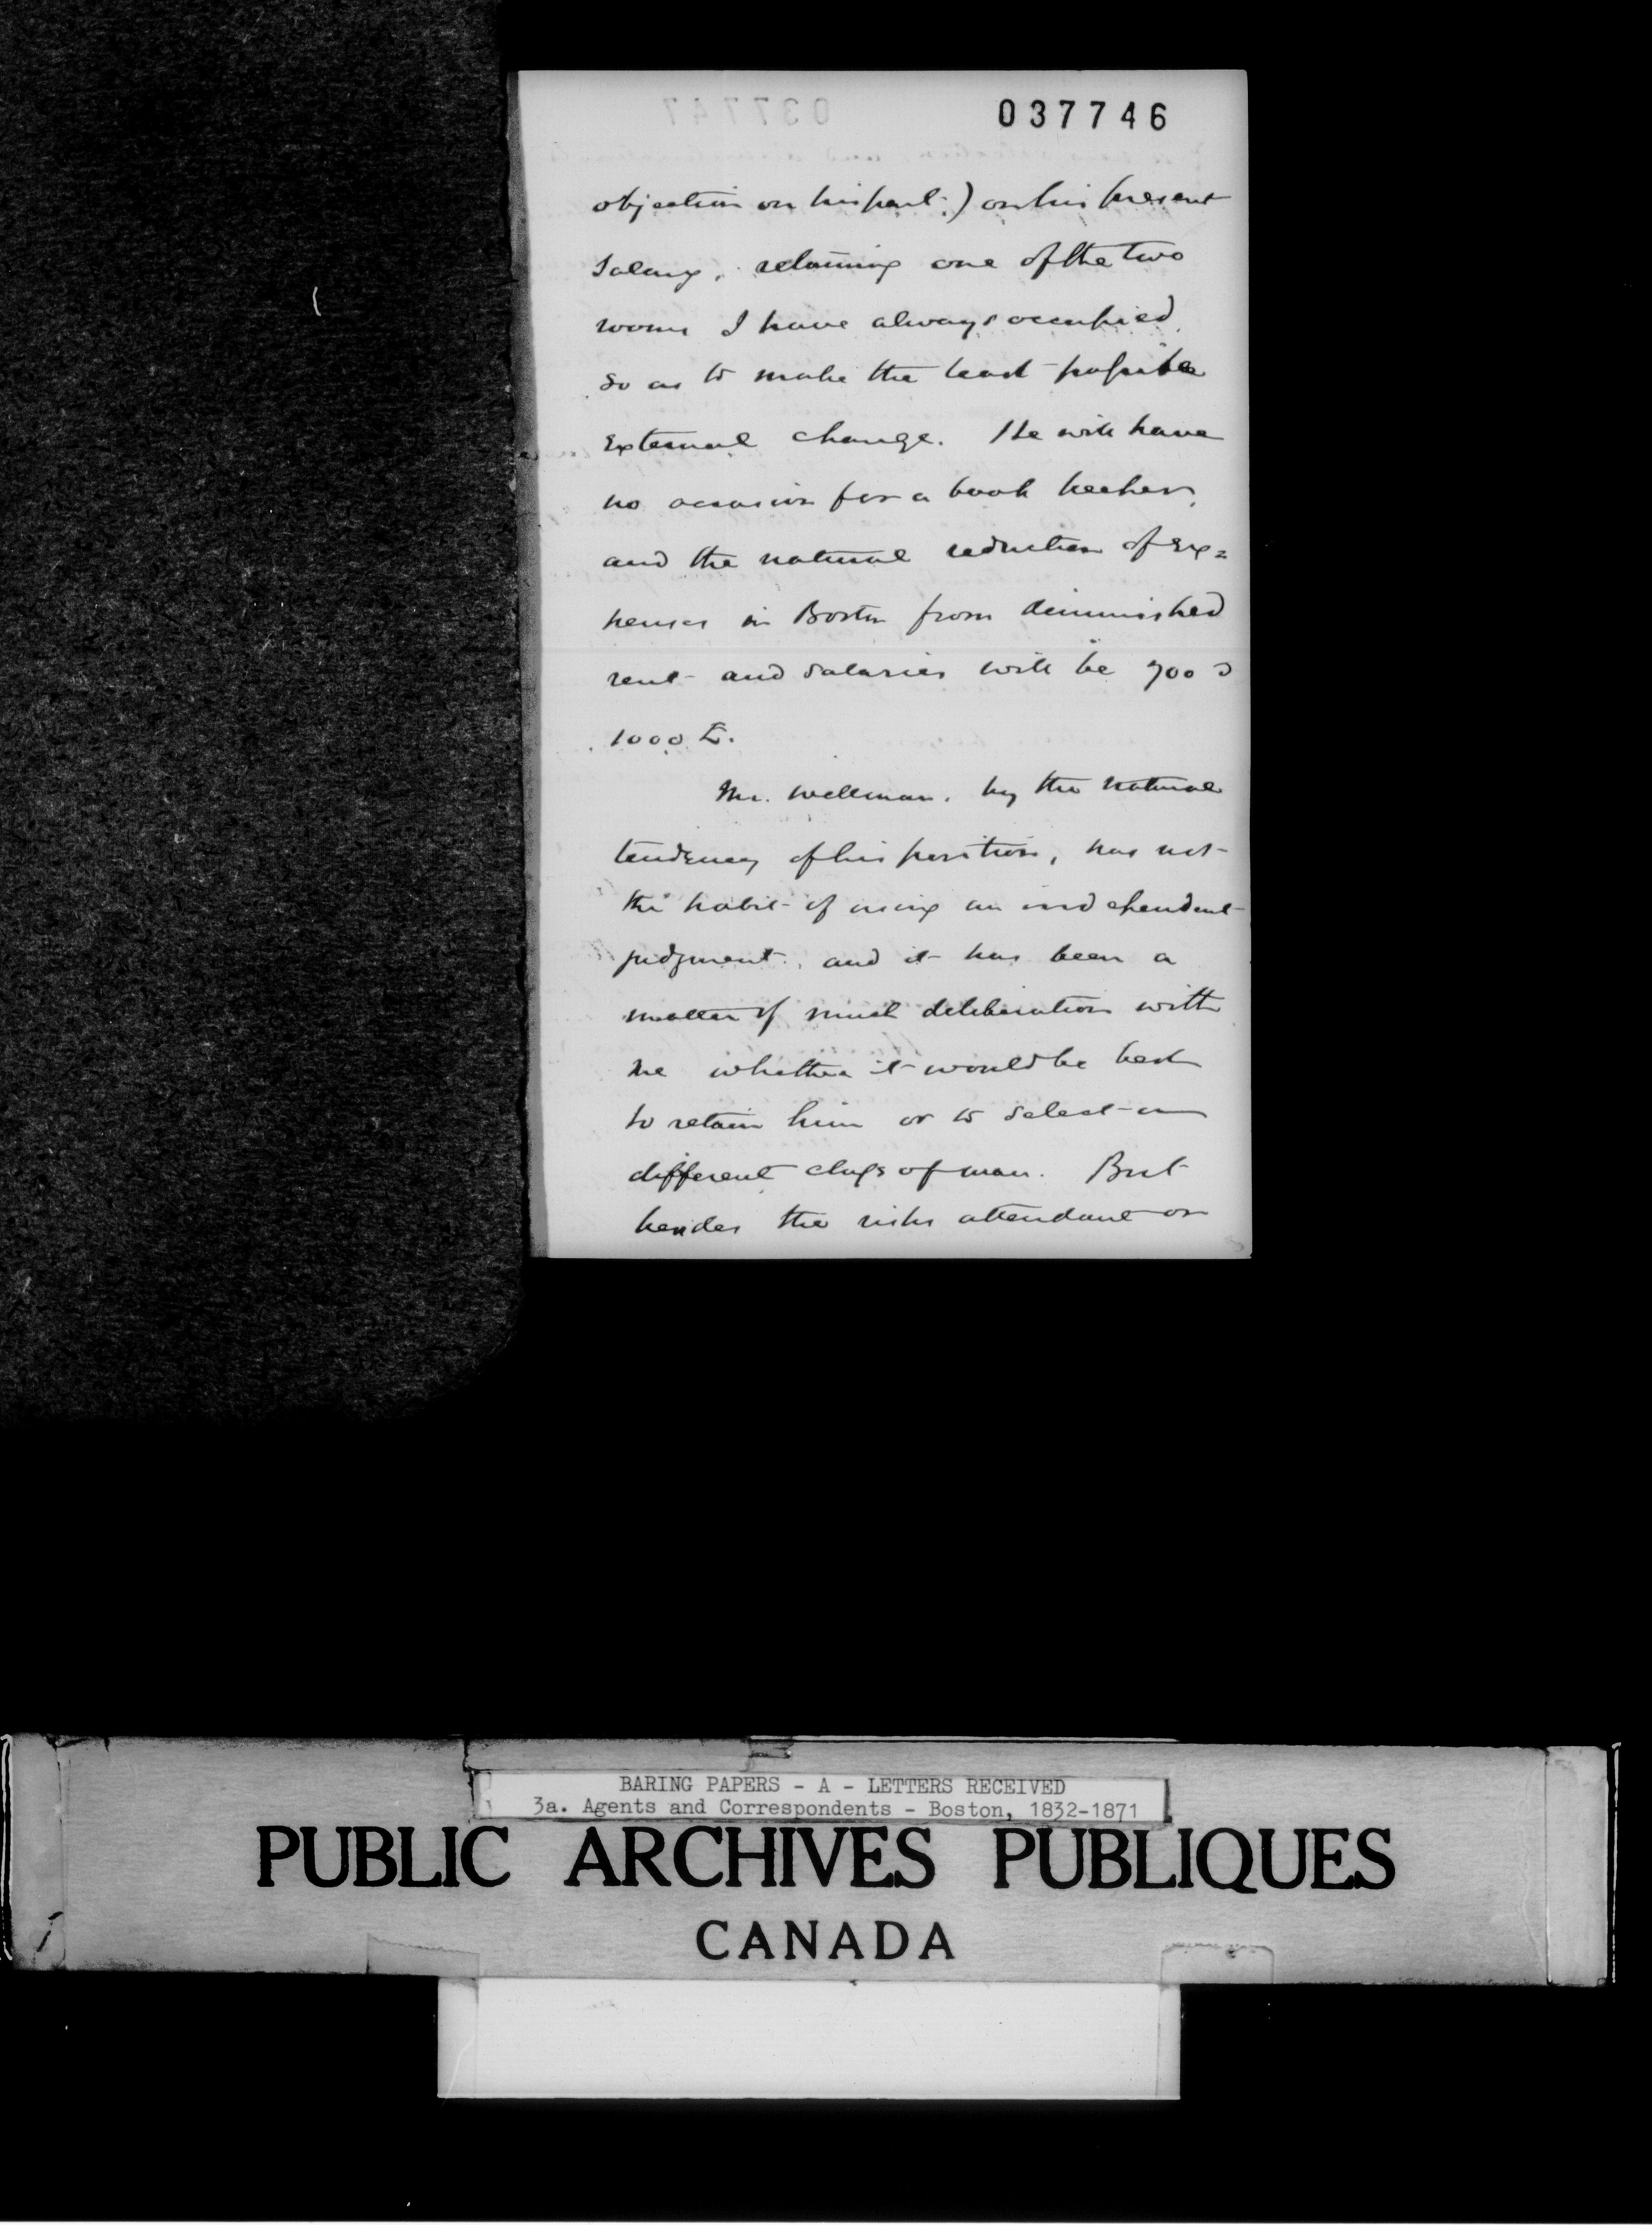 037746
objection on his part.) on his present
salary, retaining one of the two
rooms I have always occupied,
so as to make the least possible
external change. He will have
no occasion for a book keeper,
and the natural reduction of ex=
penses in Boston from diminished
rent and salaries will be 700 @
1000 £.
Mr. Wellman, by the natural
tendency of his position, has not
the habit of using an independent
judgment, and it has been a
matter of much deliberation with
me whether it would be best
to retain him or to select a
different class of man. But
besides the risks attendant on
BARING PAPERS - A - LETTERS RECEIVED
3a. Agents and Correspondents - Boston, 1832-1871
PUBLIC ARCHIVES PUBLIQUES
CANADA